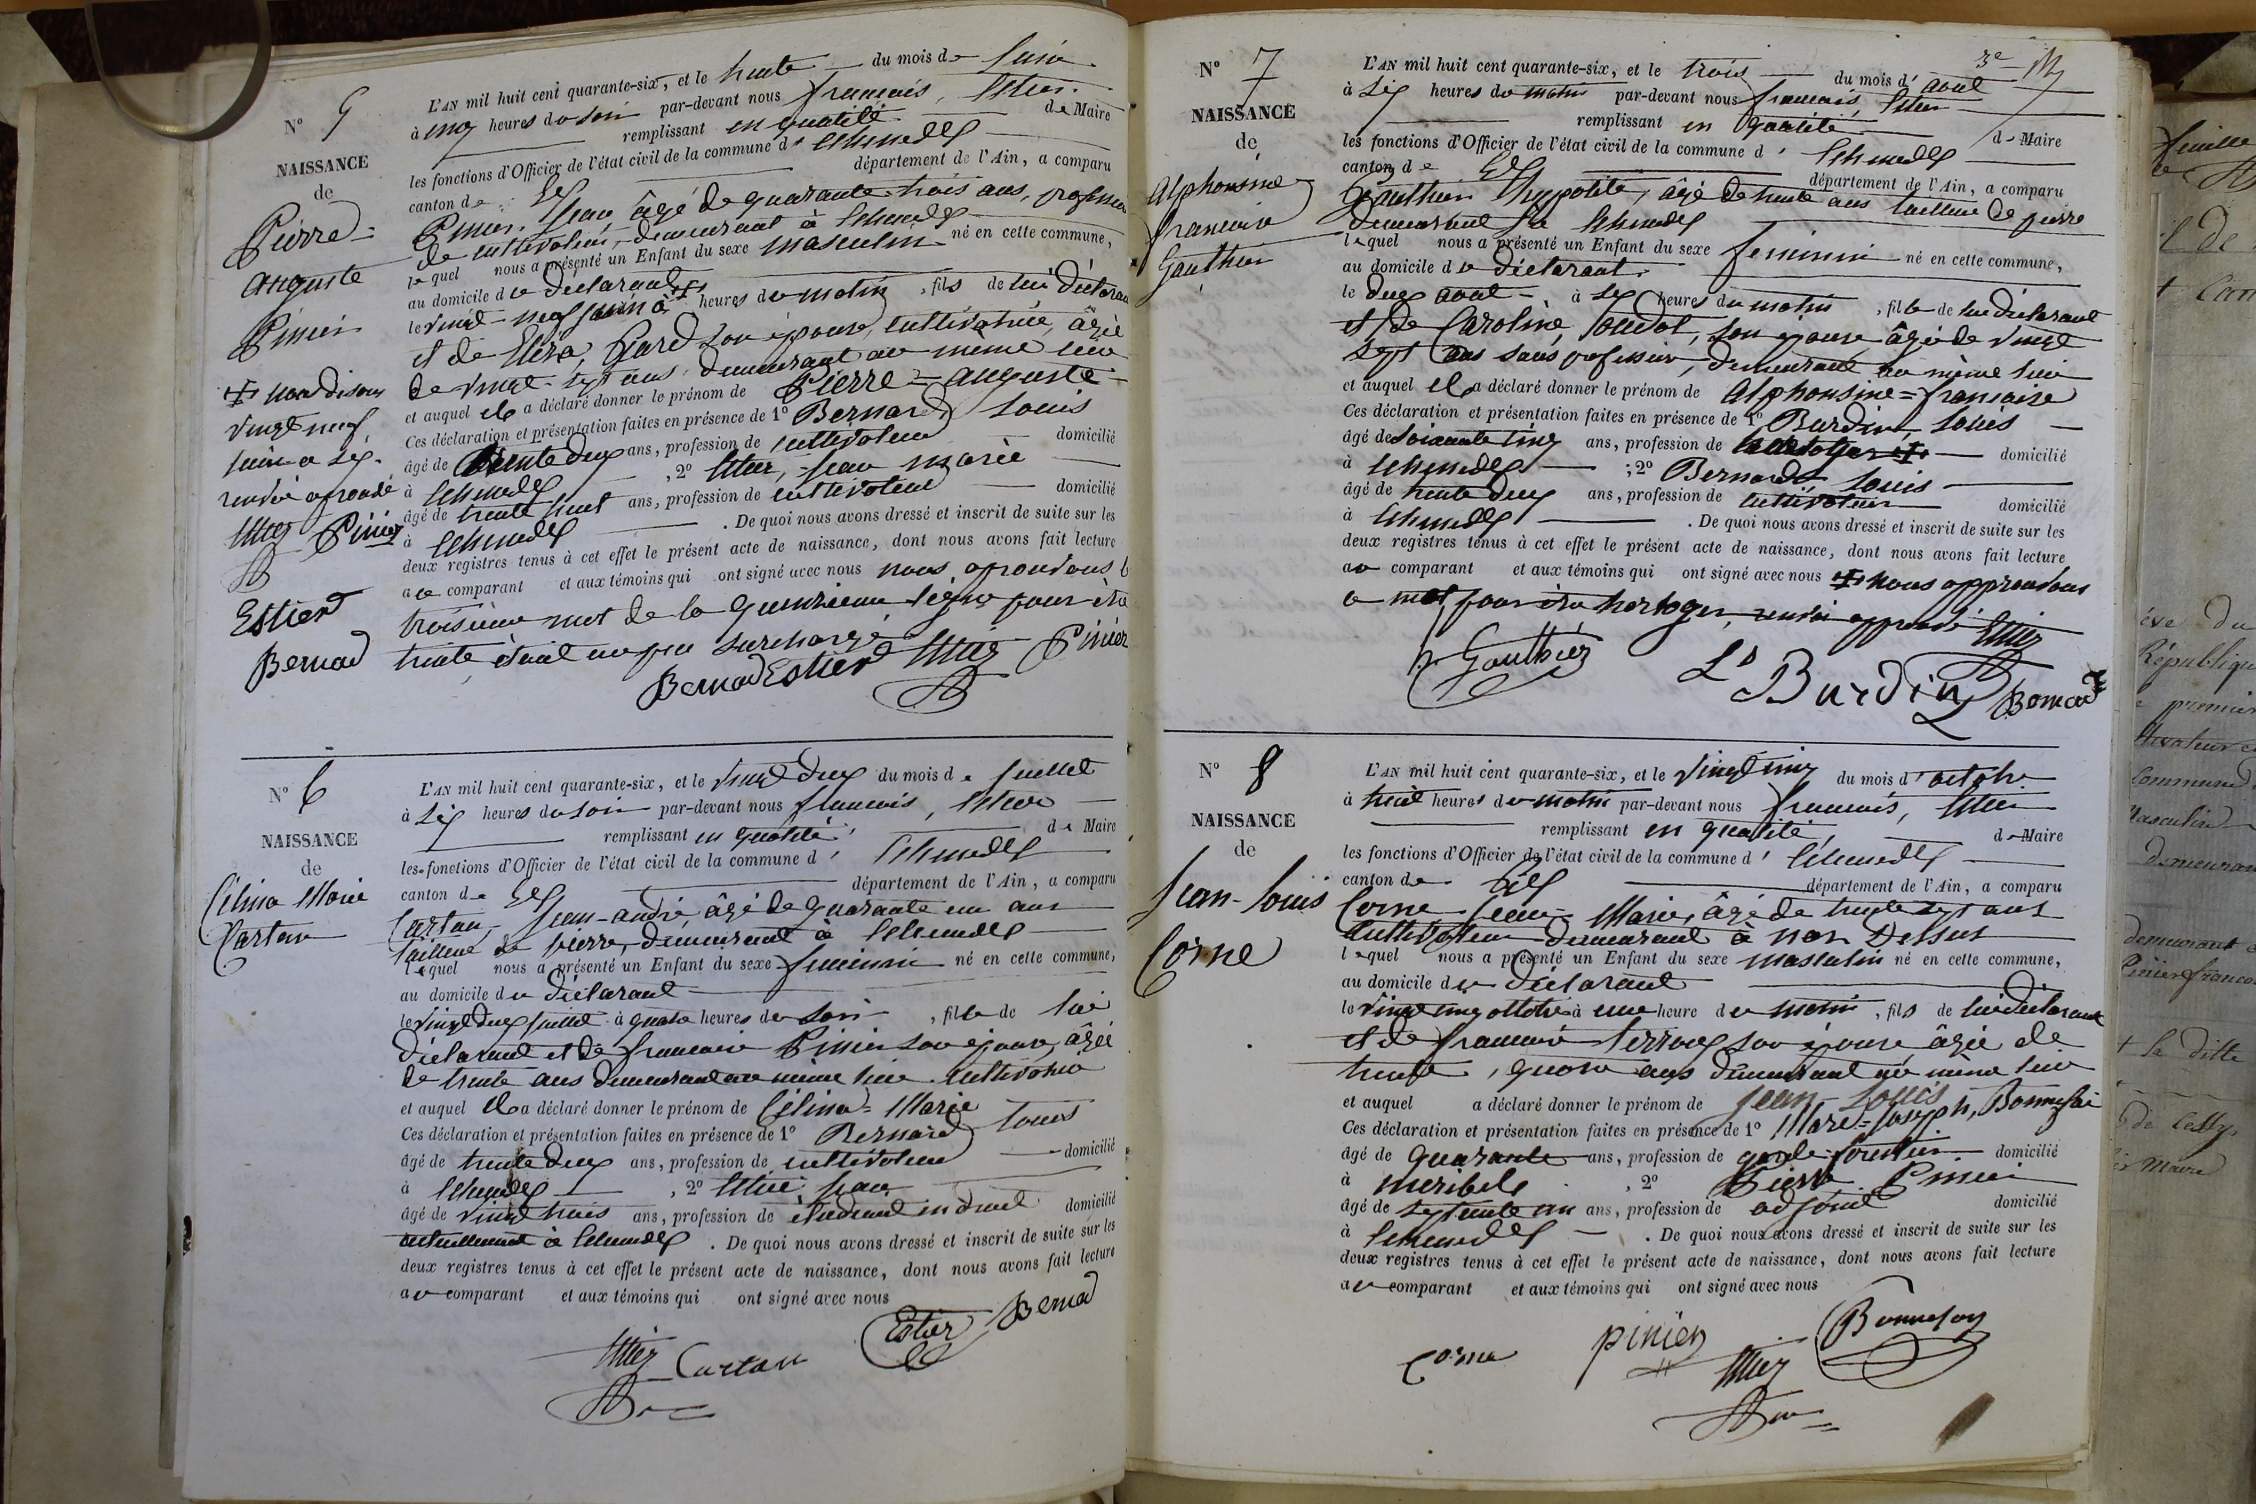 N° 5
NAISSANCE
de
Pierre =
auguste
Pinier
vingt neuf
juin à six.
renvoi aprouvé
Pinier
Estier
Bernard
L'AN mil huit cent quarante-six, et le trente du mois de Juin
à cinq heures du soir par-devant nous françois,
remplissant en qualité de Maire
les fonctions d'Officier de l'état civil de la commune d'
canton de département de l'Ain, a comparu
Pinier, Jean âgé de quarante-trois ans, profession
de cultivateur, demeurant à
lequel nous a présenté un Enfant du sexe masculin né en cette commune,
au domicile du déclarant
le vingt-neuf juin à heures du matin, fils de lui déclarant
et de Eliza, Gard son épouse, cultivatrice, âgée
de vingt-sept ans demeurant au même lieu
et auquel il a déclaré donner le prénom de Pierre = auguste
Ces déclaration et présentation faites en présence de 1° Bernard Louis
âgé de trente deux ans, profession de cultivateur domicilié
à , 2° jean marie
âgé de trente huit ans, profession de cultivateur domicilié
à . De quoi nous avons dressé et inscrit de suite sur les
deux registres tenus à cet effet le présent acte de naissance, dont nous avons fait lecture
au comparant et aux témoins qui ont signé avec nous nous aprouvons le
troisième mot de la quinzième ligne pour être
trente étant un peu surchargé
Bernard Estier Pinier
N° 6
NAISSANCE
de
Célina Marie
Cartan
L'AN mil huit cent quarante-six, et le vingt deux du mois de juillet
à six heures du soir par-devant nous francois,
remplissant en qualité de Maire
les fonctions d'Officier de l'état civil de la commune d'
canton de département de l'Ain, a comparu
Cartan, Jean-andré âgé de quarante un ans
tailleur de pierre, demeurant à
lequel nous a présenté un Enfant du sexe feminin né en cette commune,
au domicile du déclarant
le vingt deux juillet à quatre heures du soir, fille de lui
déclarant et de francoise Pinier son épouse, âgée
de trente ans demeurant au même lieu cultivatrice
et auquel il a déclaré donner le prénom de Célina = Marie
Ces déclaration et présentation faites en présence de 1° Bernard Louis
âgé de trente deux ans, profession de cultivateur domicilié
à , 2°
âgé de vingt trois ans, profession de étudiant en droit domicilié
actuellement à . De quoi nous avons dressé et inscrit de suite sur les
deux registres tenus à cet effet le présent acte de naissance, dont nous avons fait lecture
au comparant et aux témoins qui ont signé avec nous
Estier Bernard
Cartan
3e
N° 7
NAISSANCE
de
Alphonsine
francoise
Gauthier
L'AN mil huit cent quarante-six, et le trois du mois d'aout
à six heures du matin par-devant nous francois,
remplissant en qualité de Maire
les fonctions d'Officier de l'état civil de la commune d'
canton de département de l'Ain, a comparu
Gauthier hypolite, âgé de trente ans tailleur de pierre
demeurant à
lequel nous a présenté un Enfant du sexe feminin né en cette commune,
au domicile du déclarant.
le deux aout à six heures du matin, fille de lui déclarant
et de Caroline, son épouse âgée de vingt
sept ans sans profession, demeurant au même lieu
et auquel il a déclaré donner le prénom de Alphonsine = francoise
Ces déclaration et présentation faites en présence de 1° Burdin, Louis
âgé de soixante cinq ans, profession de domicilié
à ; 2° Bernard Louis
âgé de trente deux ans, profession de cultivateur domicilié
à . De quoi nous avons dressé et inscrit de suite sur les
deux registres tenus à cet effet le présent acte de naissance, dont nous avons fait lecture
au comparant et aux témoins qui ont signé avec nous nous approuvons
le mot pour être horloger, renvoi approuvé
Gauthier Ls Burdin Bernard
N° 8
NAISSANCE
de
Jean-Louis
Corne
L'AN mil huit cent quarante-six, et le vingt cinq du mois d'octobre
à huit heures du matin par-devant nous francois,
remplissant en qualité, de Maire
les fonctions d'Officier de l'état civil de la commune d'
canton de département de l'Ain, a comparu
Corne Jean-Marie, âgé de trente sept ans
cultivateur demeurant à
lequel nous a présenté un Enfant du sexe masculin né en cette commune,
au domicile du déclarant
le vingt cinq octobre à une heure du matin, fils de lui déclarant
et de francoise son épouse âgée de
trente, quatre ans demeurant au même lieu
et auquel a déclaré donner le prénom de Jean-Louis
Ces déclaration et présentation faites en présence de 1° Marc-Joseph, Bonnefoi
âgé de quarante ans, profession de garde-forestier domicilié
à miribel , 2° Pierre Pinier
âgé de septente un ans, profession de adjoint domicilié
à . De quoi nous avons dressé et inscrit de suite sur les
deux registres tenus à cet effet le présent acte de naissance, dont nous avons fait lecture
au comparant et aux témoins qui ont signé avec nous
Corne pinier Bonnefoy
République
demeurant
Commune